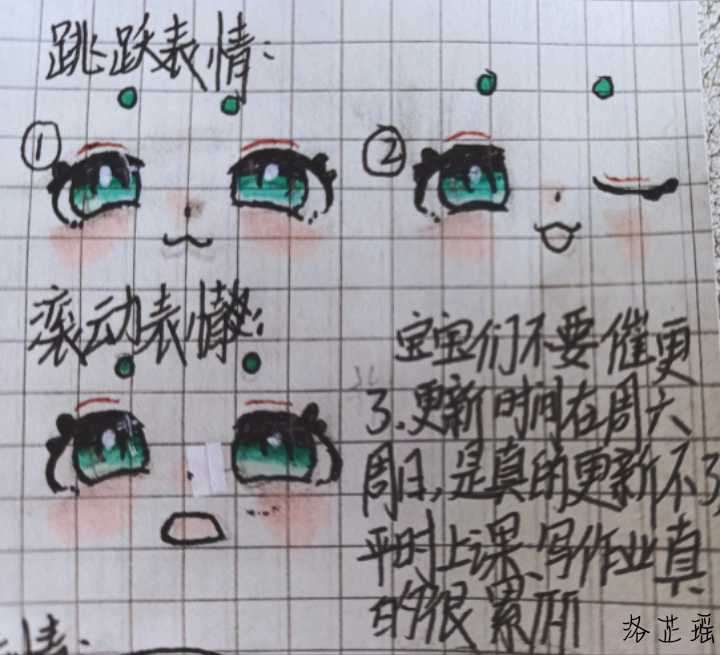 跳跃表情:
①
②
滚动表情:
宝宝们不要催更
了.更新时间在周六
周日,是真的更新不了
平时上课、写作业真
的很累所
情:
洛芷瑶